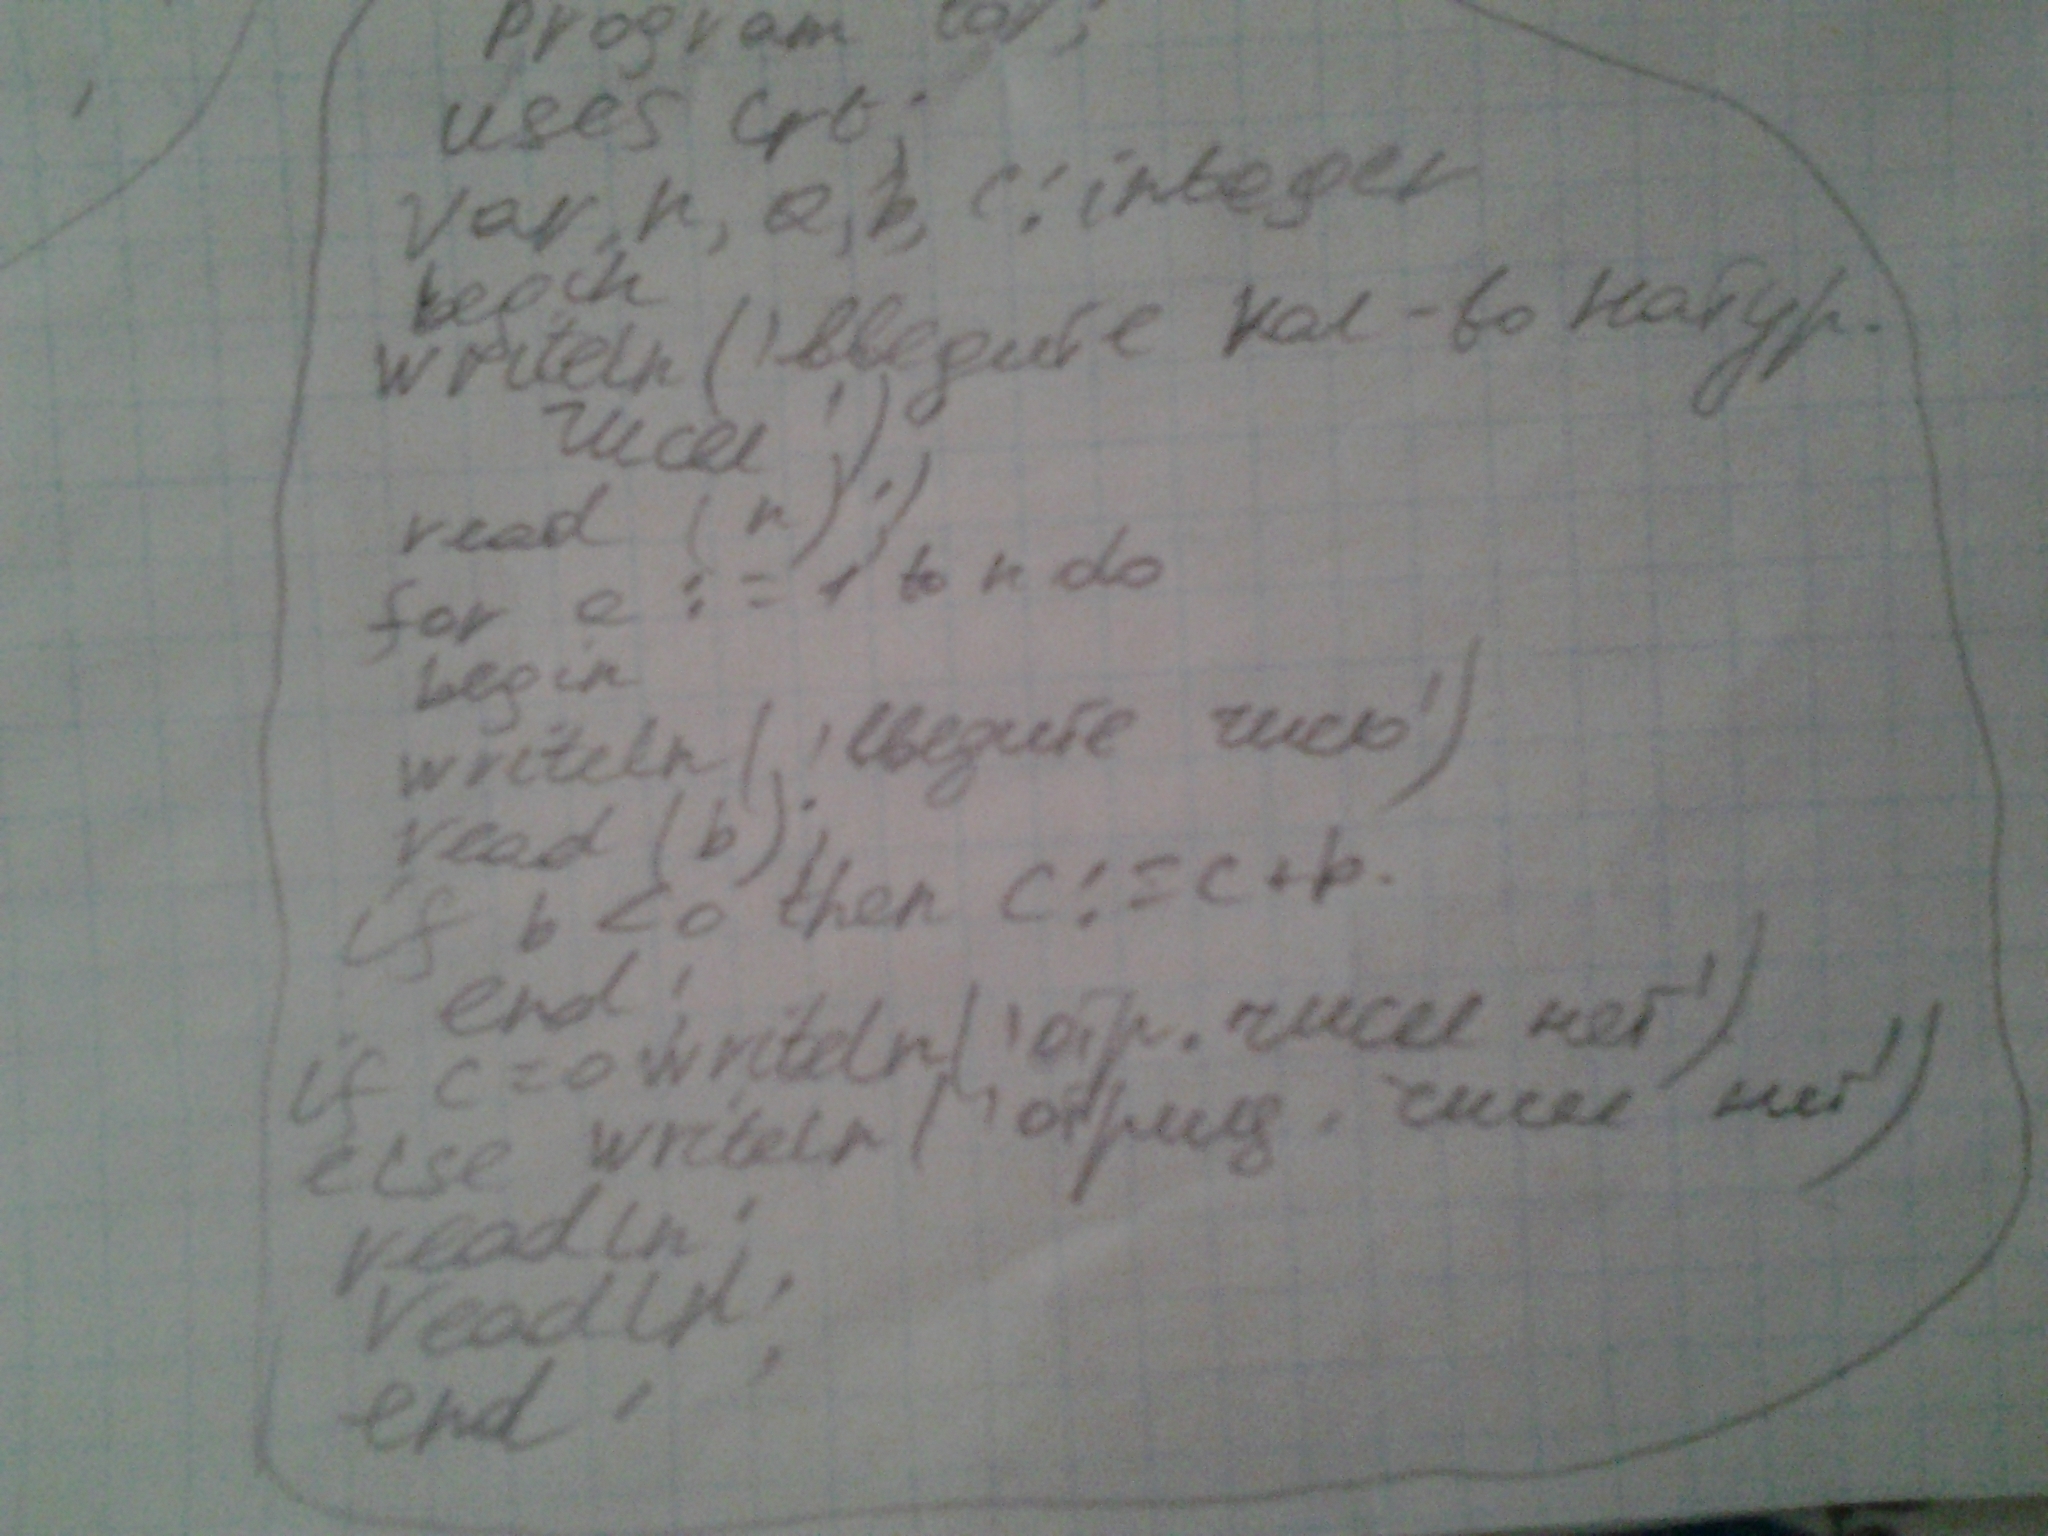 program
uses Crt;
var n, a, b, c: integer
begin
writeln('введите кол-во натур.
чисел');
read (n);
for a := 1 to n do
begin
writeln('введите число')
read (b);
if b < 0 then c := c + b.
end;
if c = 0 writeln('отр. чисел нет')
else writeln('отриц. чисел нет')
readln;
readln;
end.